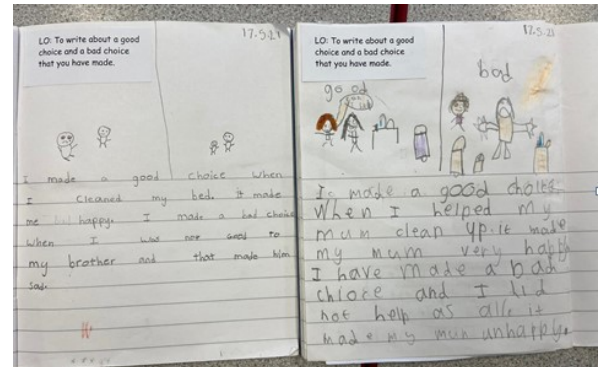 17.5.21
LO: To write about a good
choice and a bad choice
that you have made.
I made a good choice when
I cleaned my bed. it made
me happy. I made a bad choice
when I was not good to
my brother and that made him
sad.
17.5.21
LO: To write about a good
choice and a bad choice
that you have made.
good
bad
I made a good choice
When I helped my
mum clean up. it made
my mum very happy
I have made a bad
chiore and I did
not help as all. it
made my mum unhappy.